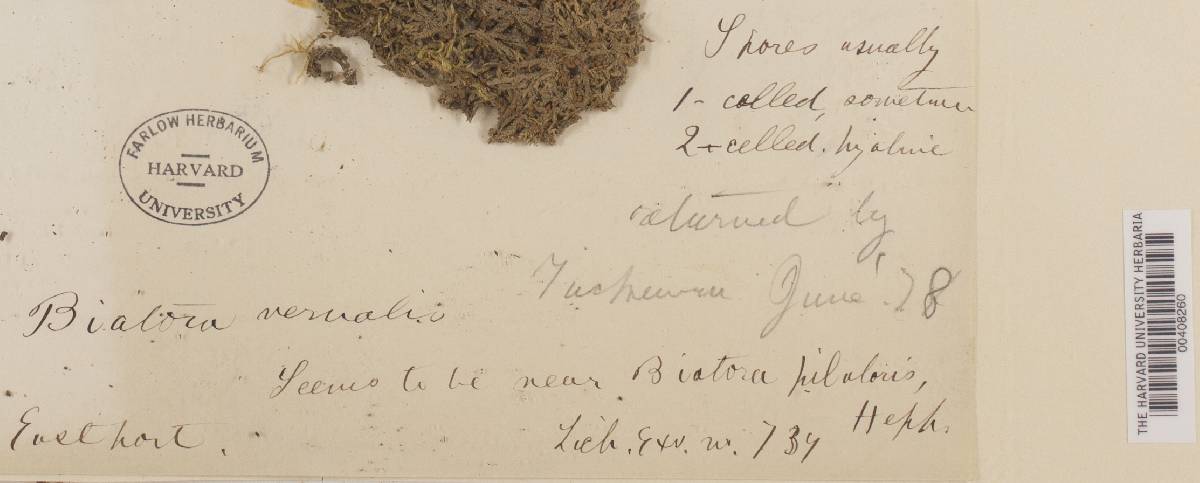 Spores usually
1-celled, sometimes
2-celled. hyaline
FARLOW HERBARIUM
HARVARD
UNIVERSITY
returned by
Tuckerman June '78
Biatora vernalis
Seems to be near Biatora pilularis,
Heph.
Eastport.
Lich. Exs. n.
THE HARVARD UNIVERSITY HERBARIA
00408260